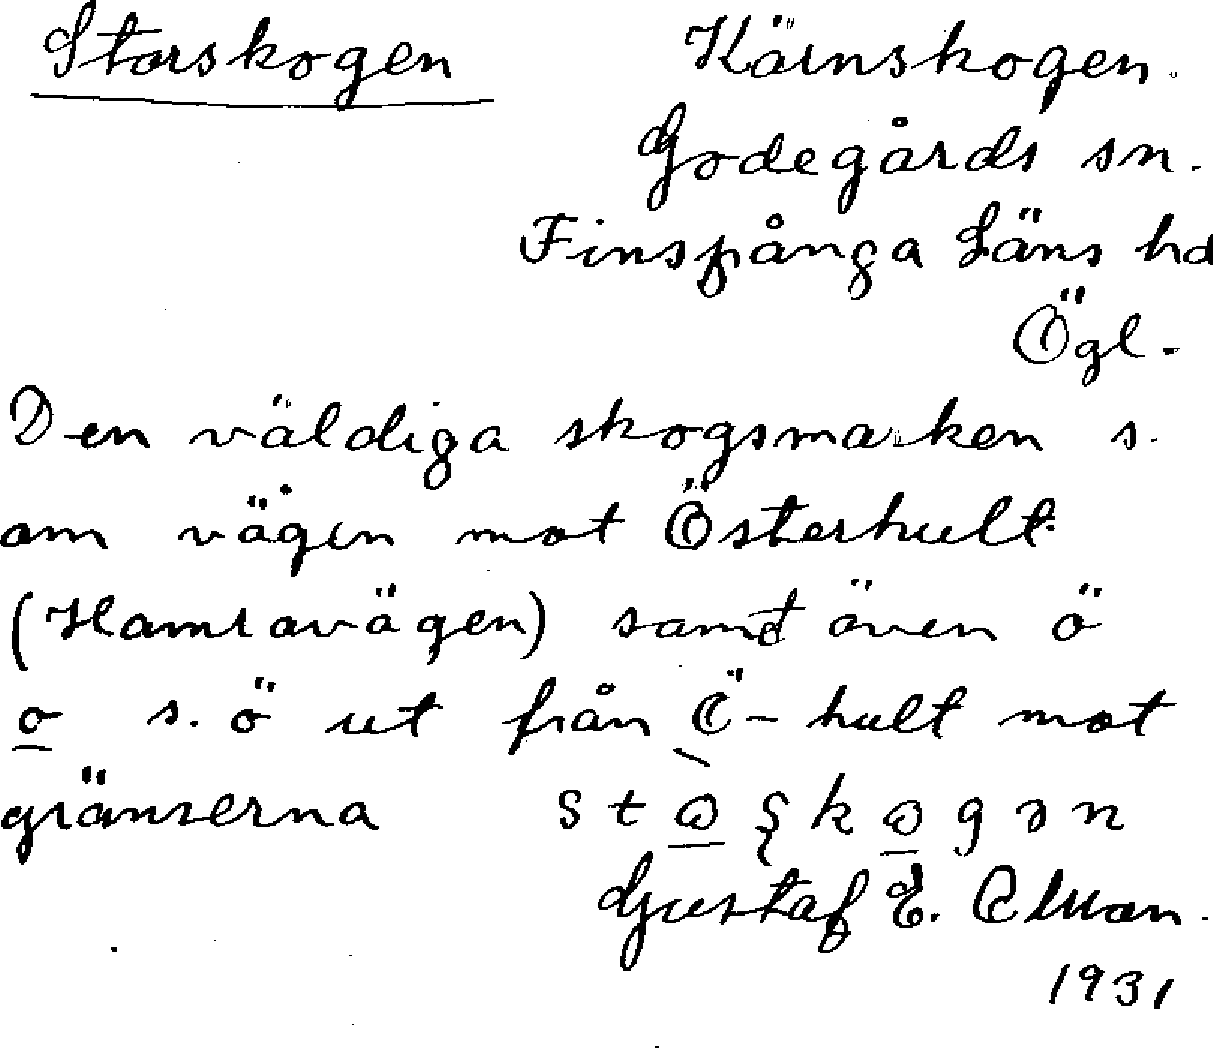 Storskogen Kärnskogen.
Godegårds sn.
Finspånga Läns hd
Ögl.
Den väldiga skogsmarken s.
om vägen mot Österhult
(Hamravägen) samt även ö
o s.ö ut från Ö-hult mot
gränserna
Gustaf E.
1931